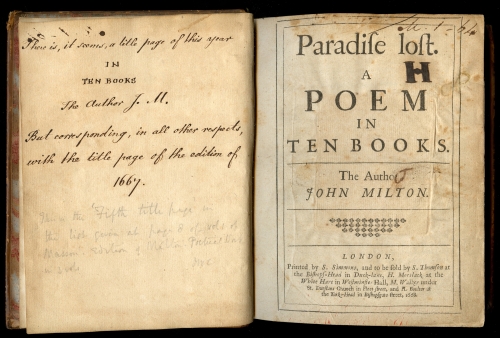 There is, it seems, a title page of this year
IN
TEN BOOKS
The Author J. M.
But corresponding, in all other respects,
with the title page of the edition of
1667.
This is the "Fifth title page" in
the list given at page of vol. of
Masson's edition of Milton Poetical Works
in vols
Paradise lost.
A
H
POEM
IN
TEN BOOKS.
The Author
JOHN MILTON.
LONDON,
Printed by S. Simmons, and to be sold by S. Thomson at
the Bishops-Head in Duck-lane, H. Mortlack at the
White Hart in Westminster Hall, M. Walker under
St. Dunstans Church in Fleet-street, and R. Boulter at
the Turks-Head in Bishopsgate street, 1668.